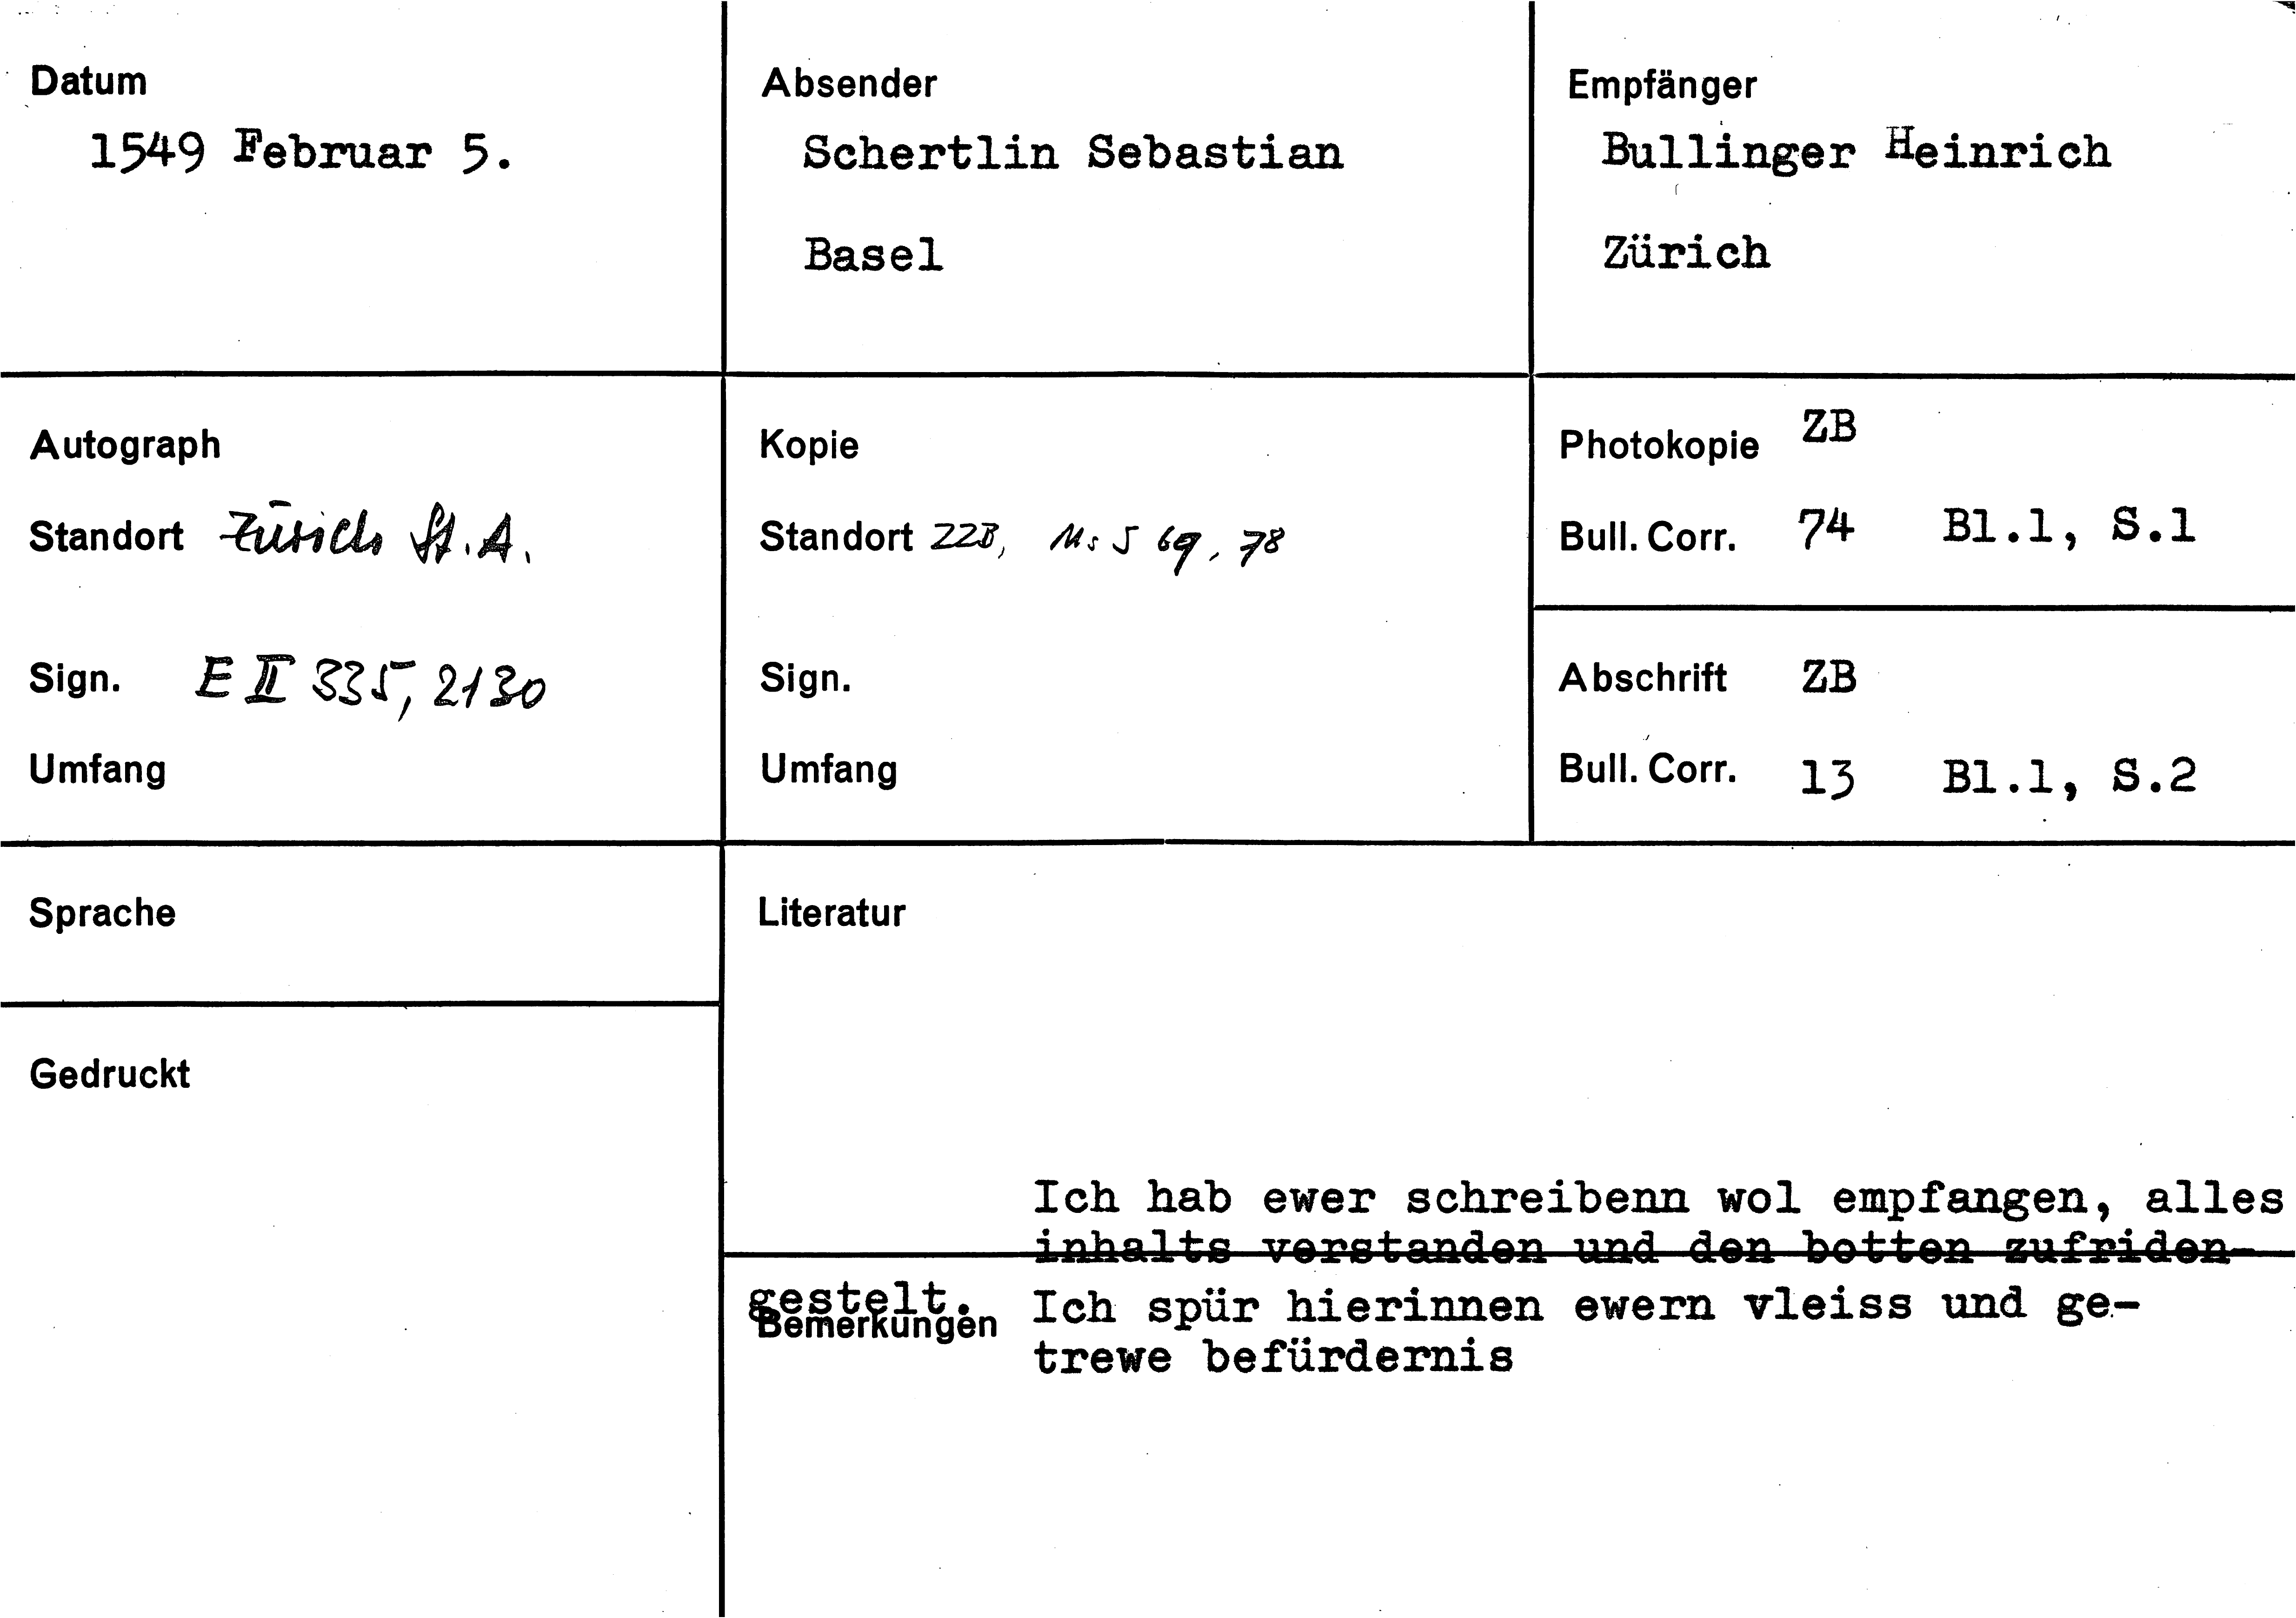 Datum
1549 Februar 5.
Absender
Schertlin Sebastian
Basel
Empfänger
Bullinger Heinrich
Zürich
Autograph
Standort Zürich St.A.
Sign. E II 335, 2130
Umfang
Kopie
Standort ZZB, Ms S 69, 78
Sign.
Umfang
Photokopie ZB
Bull. Corr. 74 Bl.1, S.1
Abschrift ZB
Bull. Corr. 13 Bl.1, S.2
Sprache
Gedruckt
Literatur
Ich hab ewer schreibenn wol empfangen, alles
inhalts verstanden und den botten zufriden-
gestelt. Ich spür hierinnen ewern vleiss und ge-
Bemerkungen
trewe befürdernis